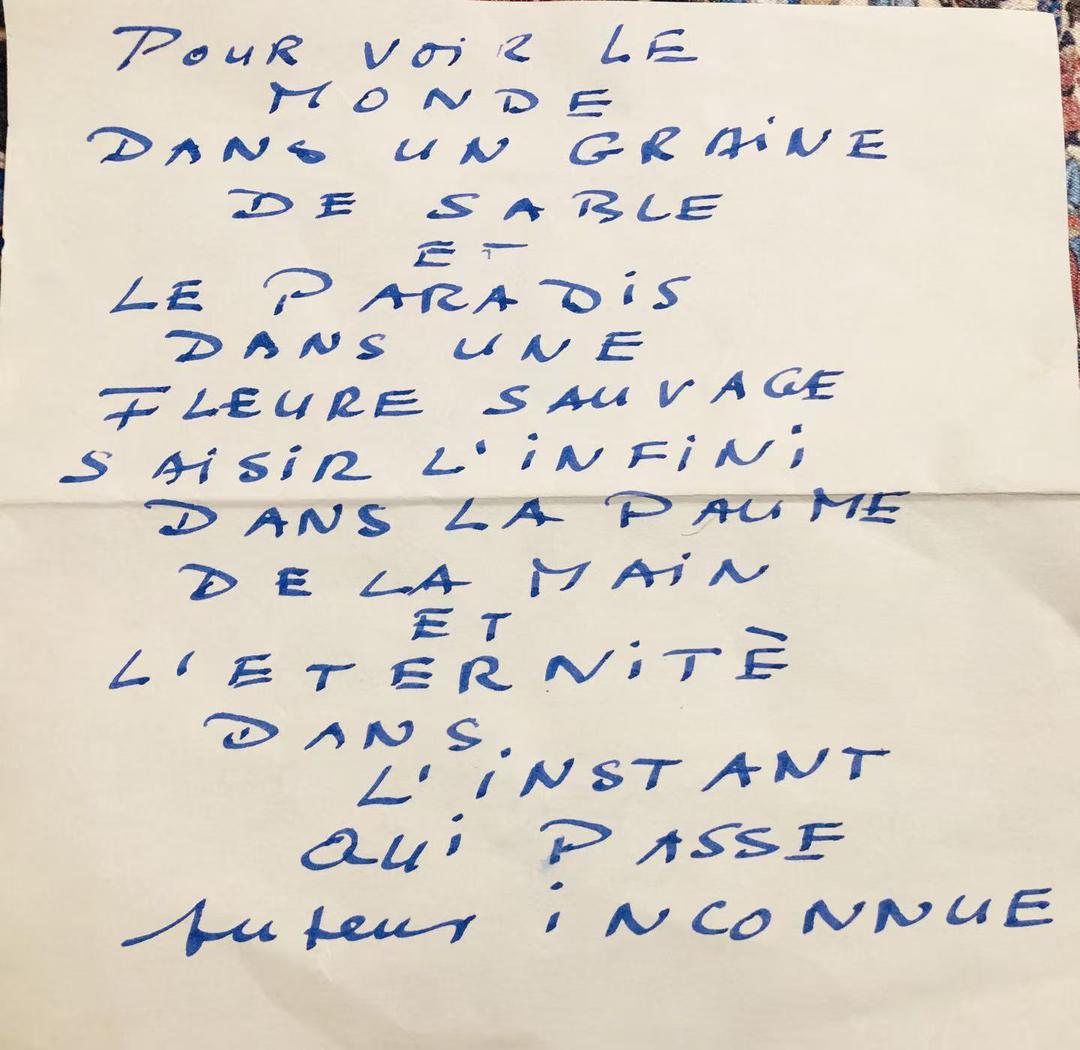 POUR VOIR LE
MONDE
DANS UN GRAINE
DE SABLE
ET
LE PARADIS
DANS UNE
FLEURE SAUVAGE
SAISIR L'INFINI
DANS LA PAUME
DE LA MAIN
ET
L'ETERNITÈ
DANS
L'INSTANT
QUI PASSE
Auteur INCONNUE